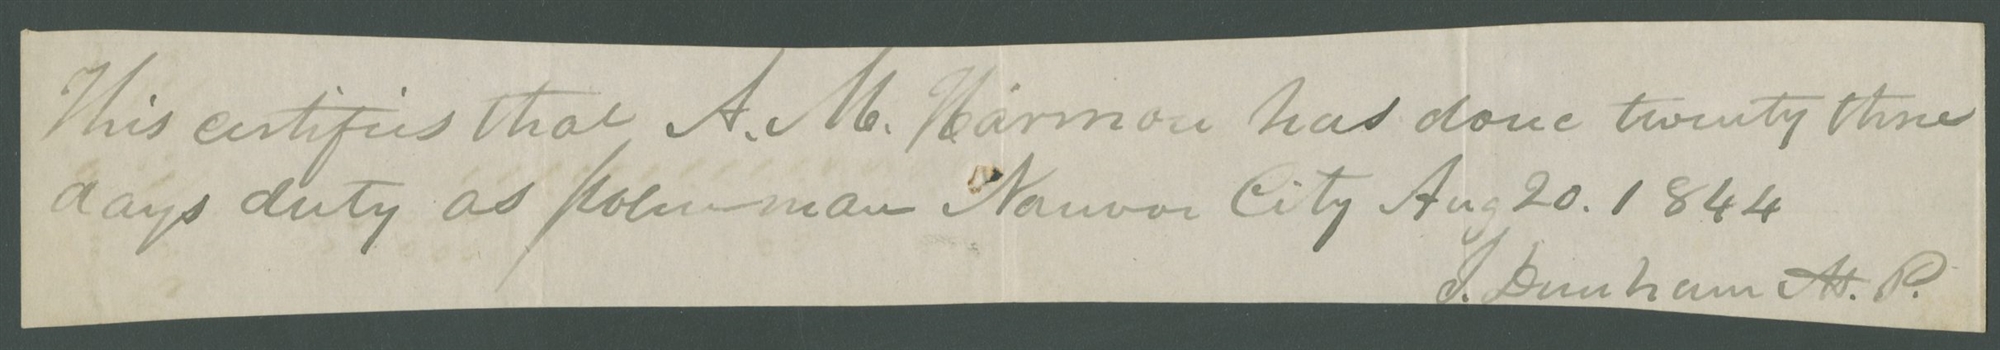 This certifies that A. M. Harmon has done twenty three
days duty as policeman Nauvoo City Aug 20. 1844
J. Dunham H. P.